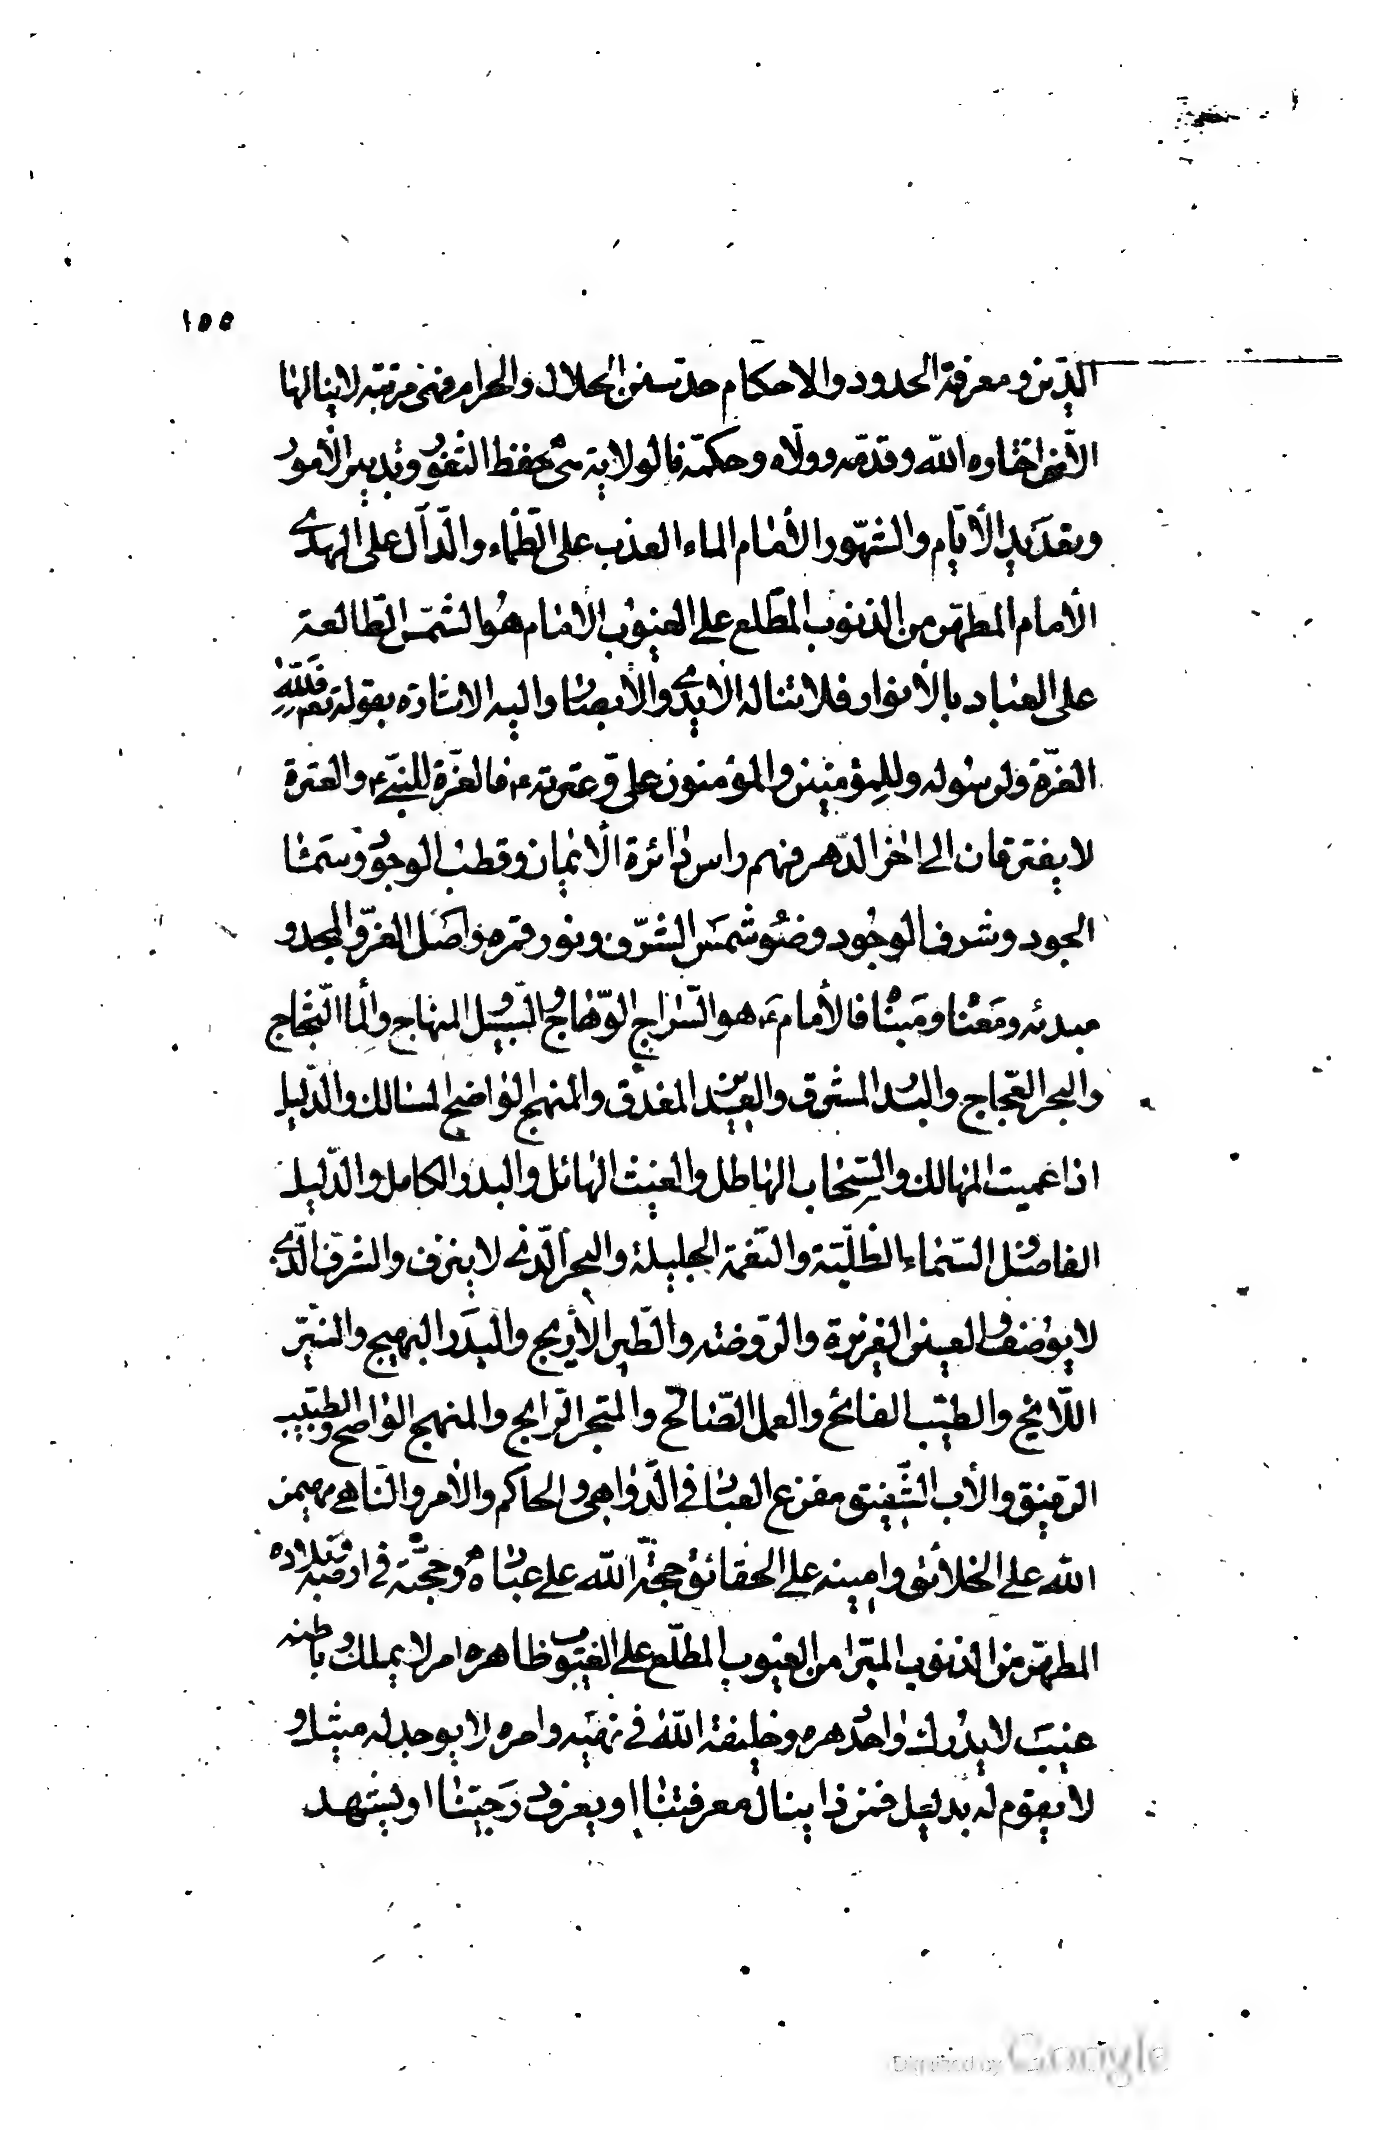 ١٥٥
الدّين و معرفة الحدود والاحكام حدّ سنن الحلال والحرام فهى مرتبة لاينالها
الّا من اختاره الله وقدّمه وولّاه وحكمّه فالولاية هى حفظ الثغور وتدبير الأمور
وتعديد الأيّام والشهور الأمام الماء العذب على الظماء والدّال على الهدى
الأمام المطهّر من الذنوب المطّلع على الغيوب الأمام هو الشمس الطالعة
على العباد بالأنوار فلا تناله الأيدى والأبصار واليه الاشارة بقوله تعم فَلِلّهِ
العزّة ولرسوله وللمؤمنين والمؤمنون على وعترته ع فالعزّة للنبى ع والعترة
لا يفترقان الى اخر الدّهر فهم راس دائرة الايمان وقطب الوجود وسمآء
الجود وشرف الوجود وضوء شمس الشرف ونور قمره واصل العزّ والمجد و
مبدئه ومعناه ومبناه فالأمام ع هو السّراج الوهّاج والسّبيل المنهاج والمآء الثجّاج
والبحر العجّاج والبدر المشرق والغدير المغدق والمنهج الواضح المسالك والدّليل
اذا عميت المهالك والسّحاب الهاطل والغيث الهائل والبدر الكامل والدّليل
الفاضل السّماء الظليّة والنّعمة الجليلة والبحر الّذى لا ينزف والشرف الّذى
لا يوصف والعين الغزيرة والرّوضة والطّير الأريج والبدر البهيج والنيّر
اللّائح والطيّب الفائح والعمل الصّالح والمتجر الرّابح والمنهج الواضح والطبيب
الرفيق والأب الشّفيق مفزع العباد فى الدّواهى والحاكم والأمر والنّاهى مهيمن
الله على الخلائق وامينه على الحقائق حجّة الله على عباده ومحجّته فى ارضه وبلاده
المطهّر من الذنوب المبرّا من العيوب المطّلع على الغيوب ظاهره امر لا يملك وباطنه
غيب لا يدرك واحد دهره وخليفة الله فى نهيه وامره لا يوجد له مثيل و
لا يقوم له بديل فمن ذا ينال معرفتنا او يعرف درجتنا او يشهد
Digitized by Google